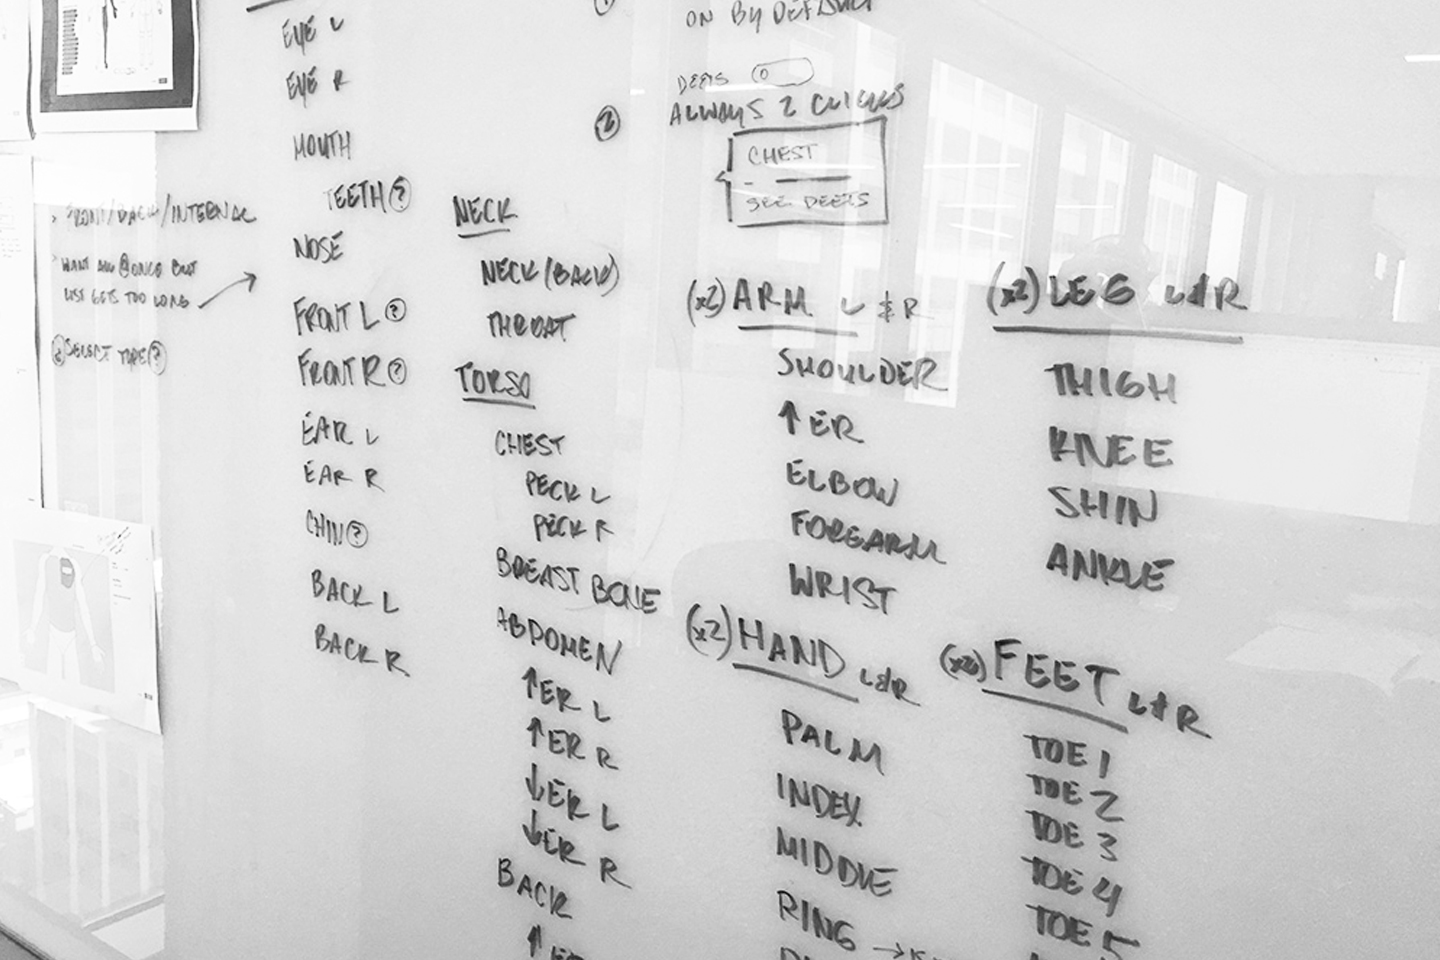 EYE L
EYE R
MOUTH
TEETH ?
NOSE
FRONT L ?
FRONT R ?
EAR L
EAR R
CHIN ?
BACK L
BACK R
FRONT/BACK/INTERNAL
WANT ALL @ ONCE BUT
LIST GETS TOO LONG →
SELECT TYPE ?
NECK
NECK (BACK)
THROAT
TORSO
CHEST
PECK L
PECK R
BREAST BONE
ABDOMEN
↑ER L
↑ER R
↓ER L
↓ER R
BACK
ON BY DEFAULT
DEETS
2
ALWAYS 2 CLICKS
CHEST
SEE DEETS
(x2) ARM L & R
SHOULDER
↑ER
ELBOW
FOREARM
WRIST
(x2) HAND L & R
PALM
INDEX
MIDDLE
RING →
(x2) LEG L & R
THIGH
KNEE
SHIN
ANKLE
(x2) FEET L & R
TOE 1
TOE 2
TOE 3
TOE 4
TOE 5